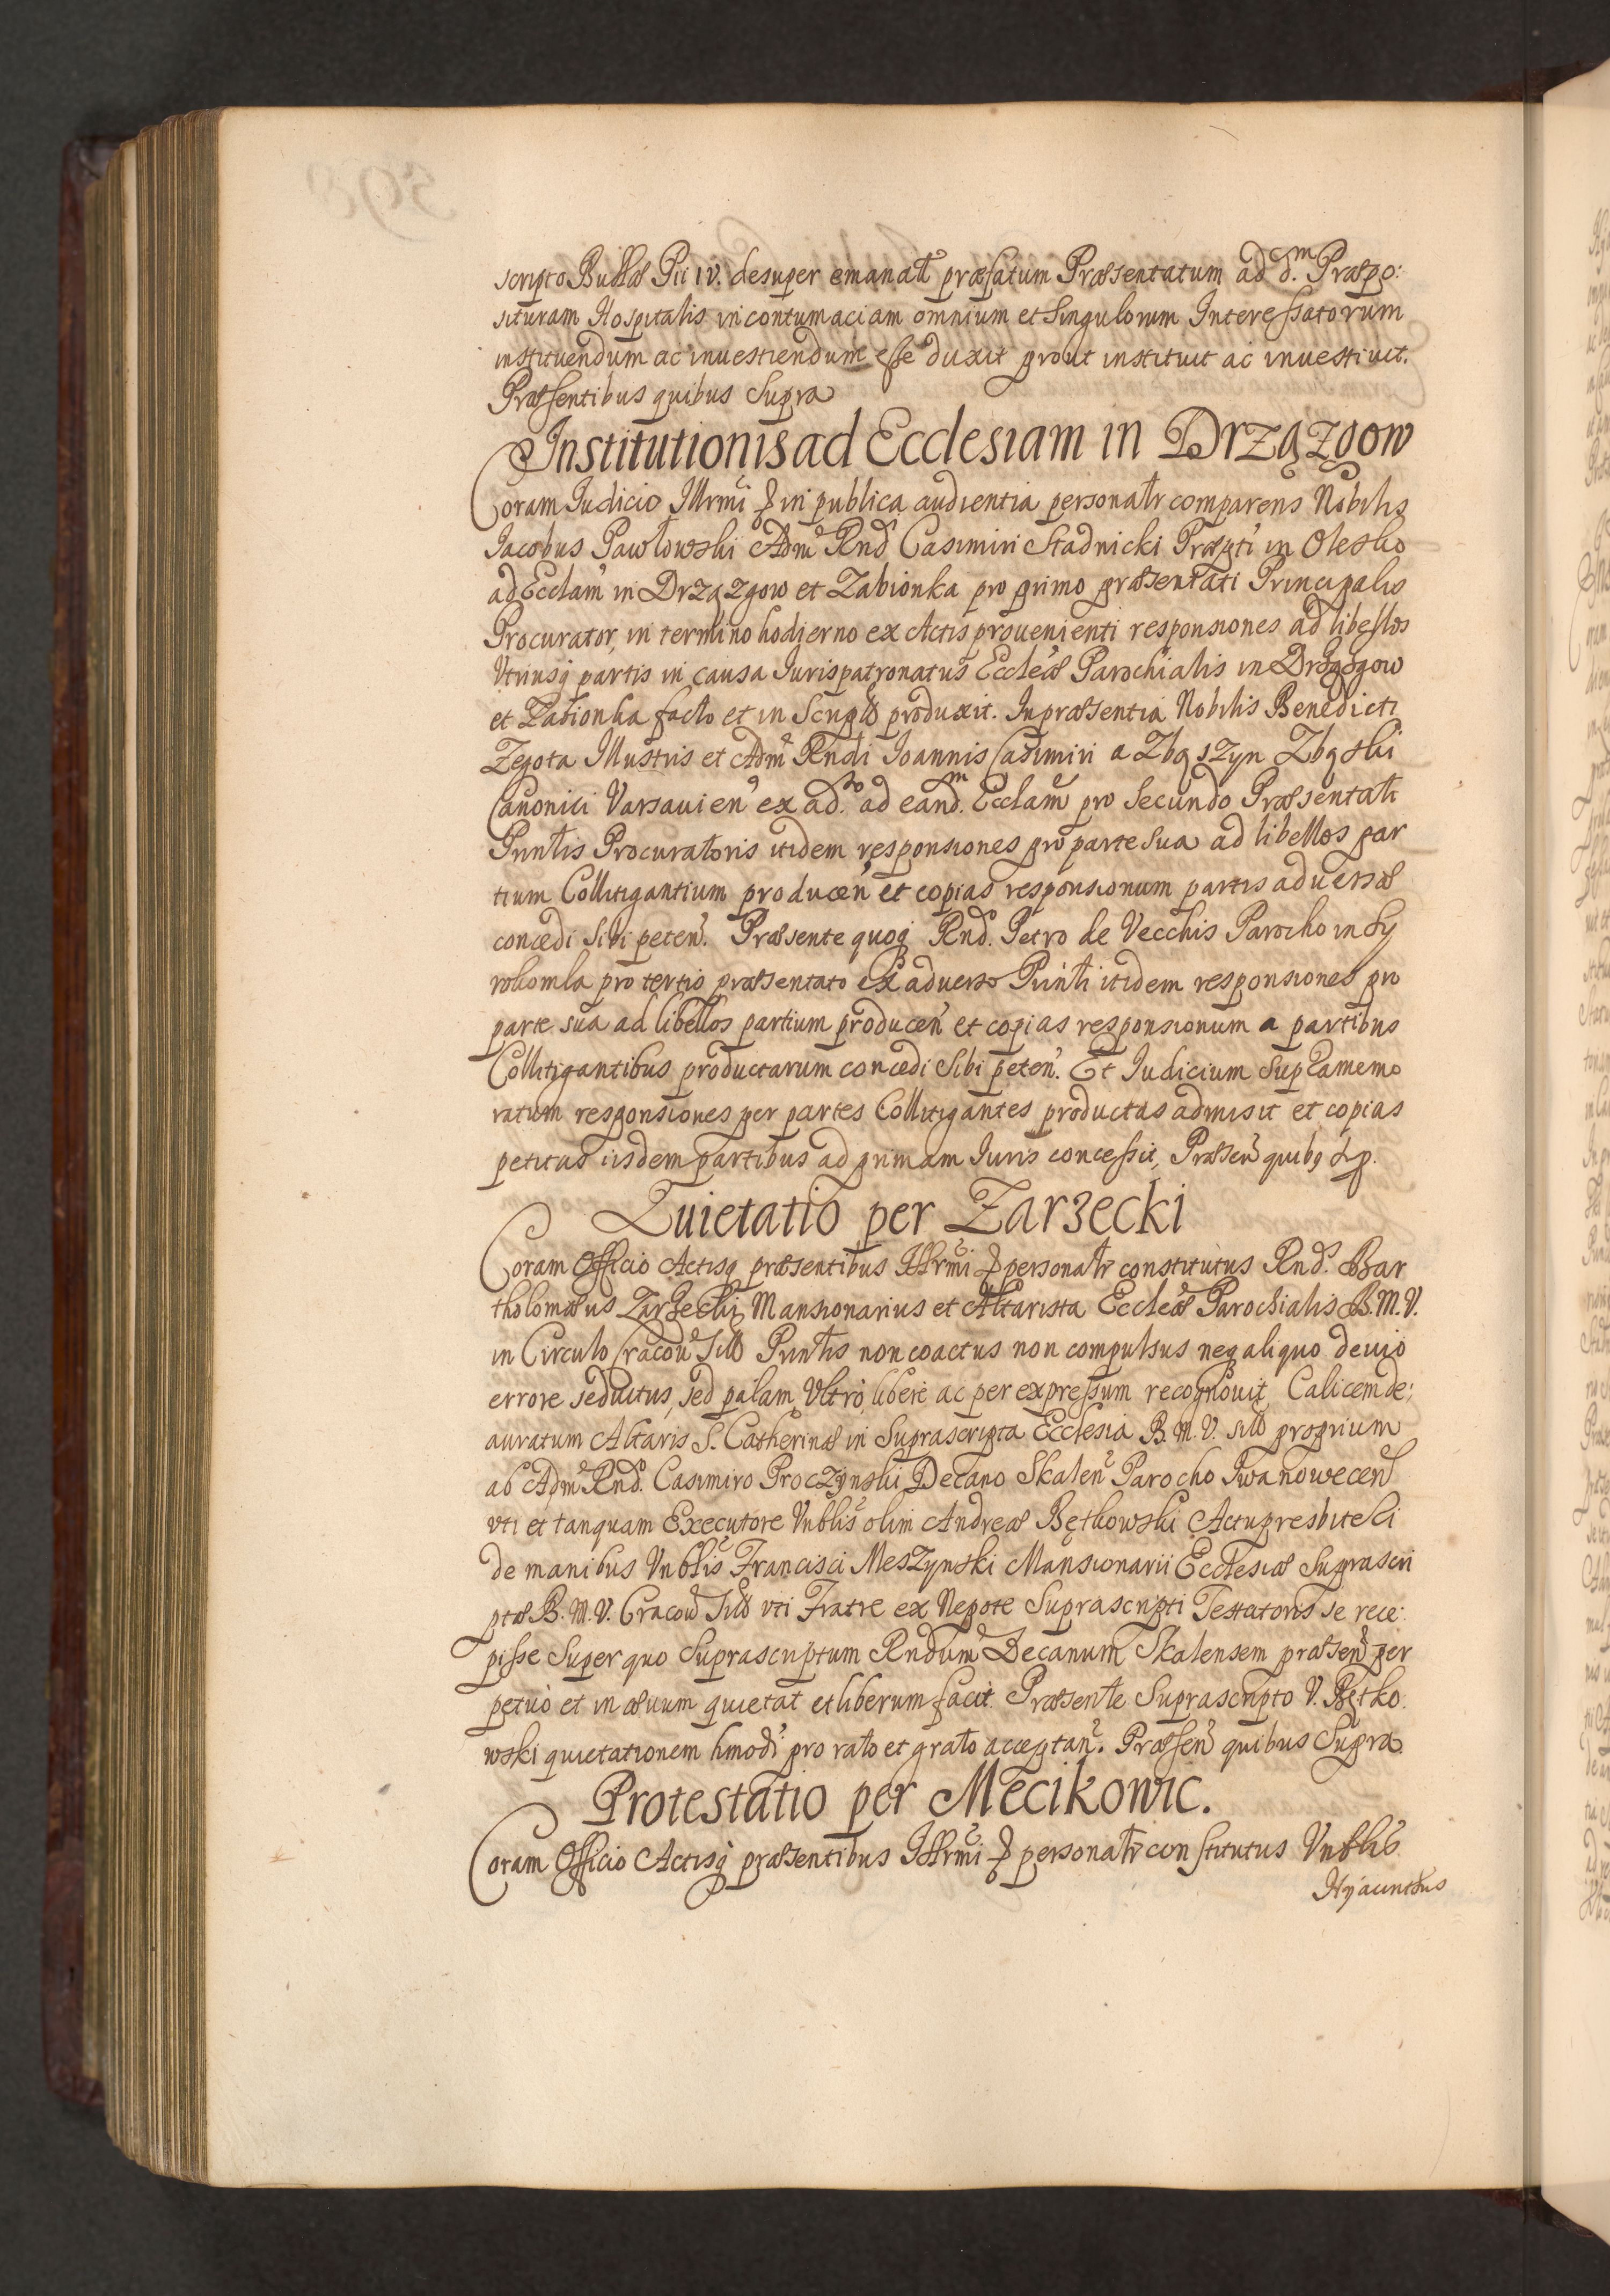 scripto Bullæ Pii IV. desuper emanat præfatum Præsentatum ad d.m Præpo:
situram Hospitalis in contumaciam omnium et Singulorum Interessatorum
instituendum ac inuestiendum esse duxit prout instituit ac inuestiuit.
Præsentibus quibus Supra
Institutionis ad Ecclesiam in Drzązgow
Coram Iudicio Illrmi & in publica audientia personalr comparens Nobilis
Jacobus Pawłowski Adm Rnd Casimiri Stadnicki Præpti in Olesko
ad Ecclam in Drzązgow et Zabionka pro primo præsentati Principalis
Procurator, in termino hodierno ex Actis prouenienti responsiones ad libellos
Vtriusq partis in causa Iurispatronatus Eccleæ Parochialis in Drzązgow
et Zabionka facto et in Scripto produxit. In præsentia Nobilis Benedicti
Zegota Illustris et Adm Rndi Ioannis Casimiri a Zbąszyn Zbąski
Canonici Varsauien ex ad.so ad eand.m Ecclam pro Secundo Præsentati
Prinlis Procuratoris itidem responsiones pro parte Sua ad libellos par
tium Collitigantium producen et copias responsionum partis aduersæ
concedi Sibi peten. Præsente quoq Rnd. Petro de Vecchis Parocho in Sy
rokomla pro tertio præsentato ex aduerso Prinli itidem responsiones pro
parte sua ad libellos partium producen et copias responsionum a partibus
Collitigantibus productarum concedi Sibi peten. Et Iudicium Supramemo
ratum responsiones per partes Collitigantes productas admisit et copias
petitas iisdem partibus ad primam Iuris concessit, Præsen quibq Sup.
Quietatio per Zarzecki
Coram Officio Actisq præsentibus Illrmi & personalr constitutus Rnd. Bar
tholomæus Zarzecki Mansionarius et Altarista Eccleæ Parochialis B.M.V.
in Circulo Cracou Sitæ Prinlis non coactus non compulsus neq aliquo deuio
errore seductus, sed palam, Vltro, libere ac per expressum recognouit Calicem de:
auratum Altaris S. Catherinæ in Suprascripta Ecclesia B.M.V. sitæ proprium
ab Adm Rnd. Casimiro Proczynski Decano Skalen Parocho Iwanowecen
vti et tanquam Executore Vnblis olim Andreæ Bętkowski Actupresbiteri
de manibus Vnblis Francisci Meszynski Mansionarii Ecclesiæ Suprascri
ptæ B.M.V. Cracou Sitæ vti Fratre ex Nepote Suprascripti Testatoris se rece:
pisse Super quo Suprascriptum Rndum Decanum Skalensem præsen per
petuo et in æuum quietat et liberum facit. Præsente Suprascripto V. Bętko
wski quietationem hmodi pro rato et grato acceptan. Præsen quibus Supra
Protestatio per Mecikowic.
Coram Officio Actisq præsentibus Illrmi & personalr constitutus Vnblis
Hyacinthus